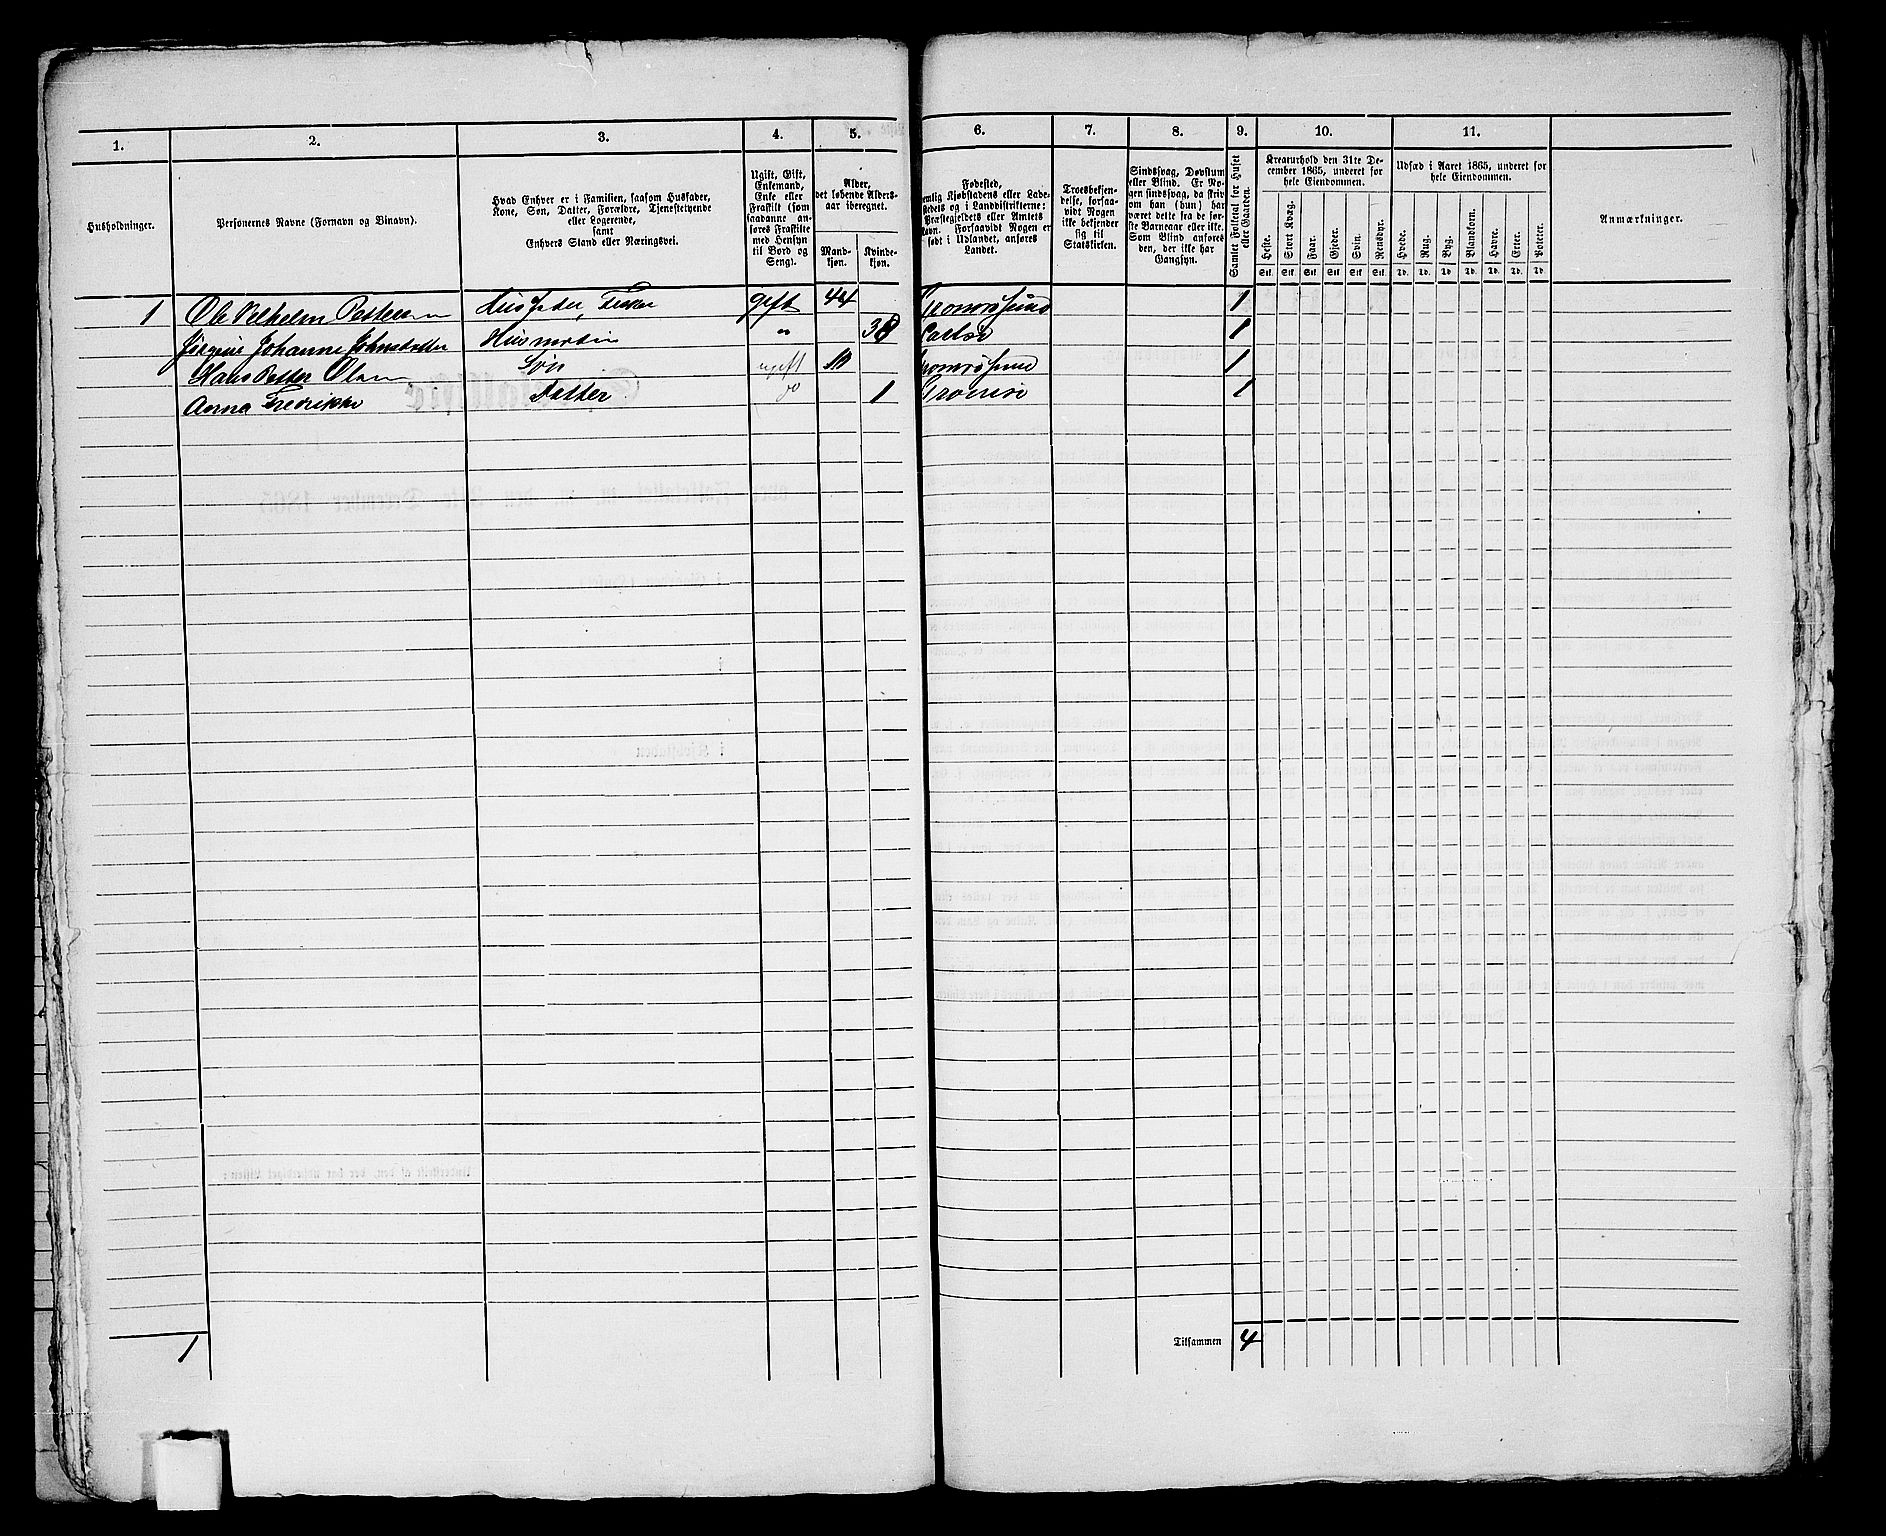 1. 2. 3. 4. 5. 6. 7. 8. 9. 10. 11.
Husholdninger.
Personernes Navne (Fornavn og Binavn).
Hvad Enhver er i Familien, saasom Husfader,
Kone, Søn, Datter, Forældre, Tjenestetyende
eller Logerende,
samt
Enhvers Stand eller Næringsvei.
Ugift, Gift,
Enkemand,
Enke eller
Fraskilt (som
saadanne an-
føres Fraskilte
med Hensyn
til Bord og
Seng).
Alder,
det løbende Alders-
aar iberegnet.
Mand-
kjøn.
Kvinde-
kjøn.
Fødested,
nemlig Kjøbstadens eller Lade-
stedets og i Landdistrikterne:
Præstegjeldets eller Amtets
Navn. Forsaavidt Nogen er
født i Udlandet, anføres
Landet.
Troesbekjen-
delse, forsaa-
vidt Nogen
ikke bekjender
sig til
Statskirken.
Sindssvag, Døvstum
eller Blind. Er No-
gen sindssvag, da skriv
om han (hun) har
været dette fra de før-
ste Barneaar eller ikke.
Som Blind anføres
den, der ikke har
Gangsyn.
Samlet Folketal for Huset
eller Gaarden.
Kreaturhold den 31te De-
cember 1865, underet for
hele Eiendommen.
Heste. Stort Kvæg. Faar. Gjeder. Svin. Rensdyr.
Stk. Stk. Stk. Stk. Stk. Stk.
Udsæd i Aaret 1865, underet for
hele Eiendommen.
Hvede. Rug. Byg. Blandkorn. Havre. Erter. Poteter.
Td. Td. Td. Td. Td. Td. Td.
Anmærkninger.
1 Ole Vilhelm Pettersen Husfader, Fisker gift 44 Tromsøsund 1
Jørgine Johanne Johnsdatter Husmoder " 38 1
Hans Petter Olsen Søn ugift Tromsøsund 1
Anna Fredrikke Datter do 1 Tromsø 1
1 Tilsammen 4